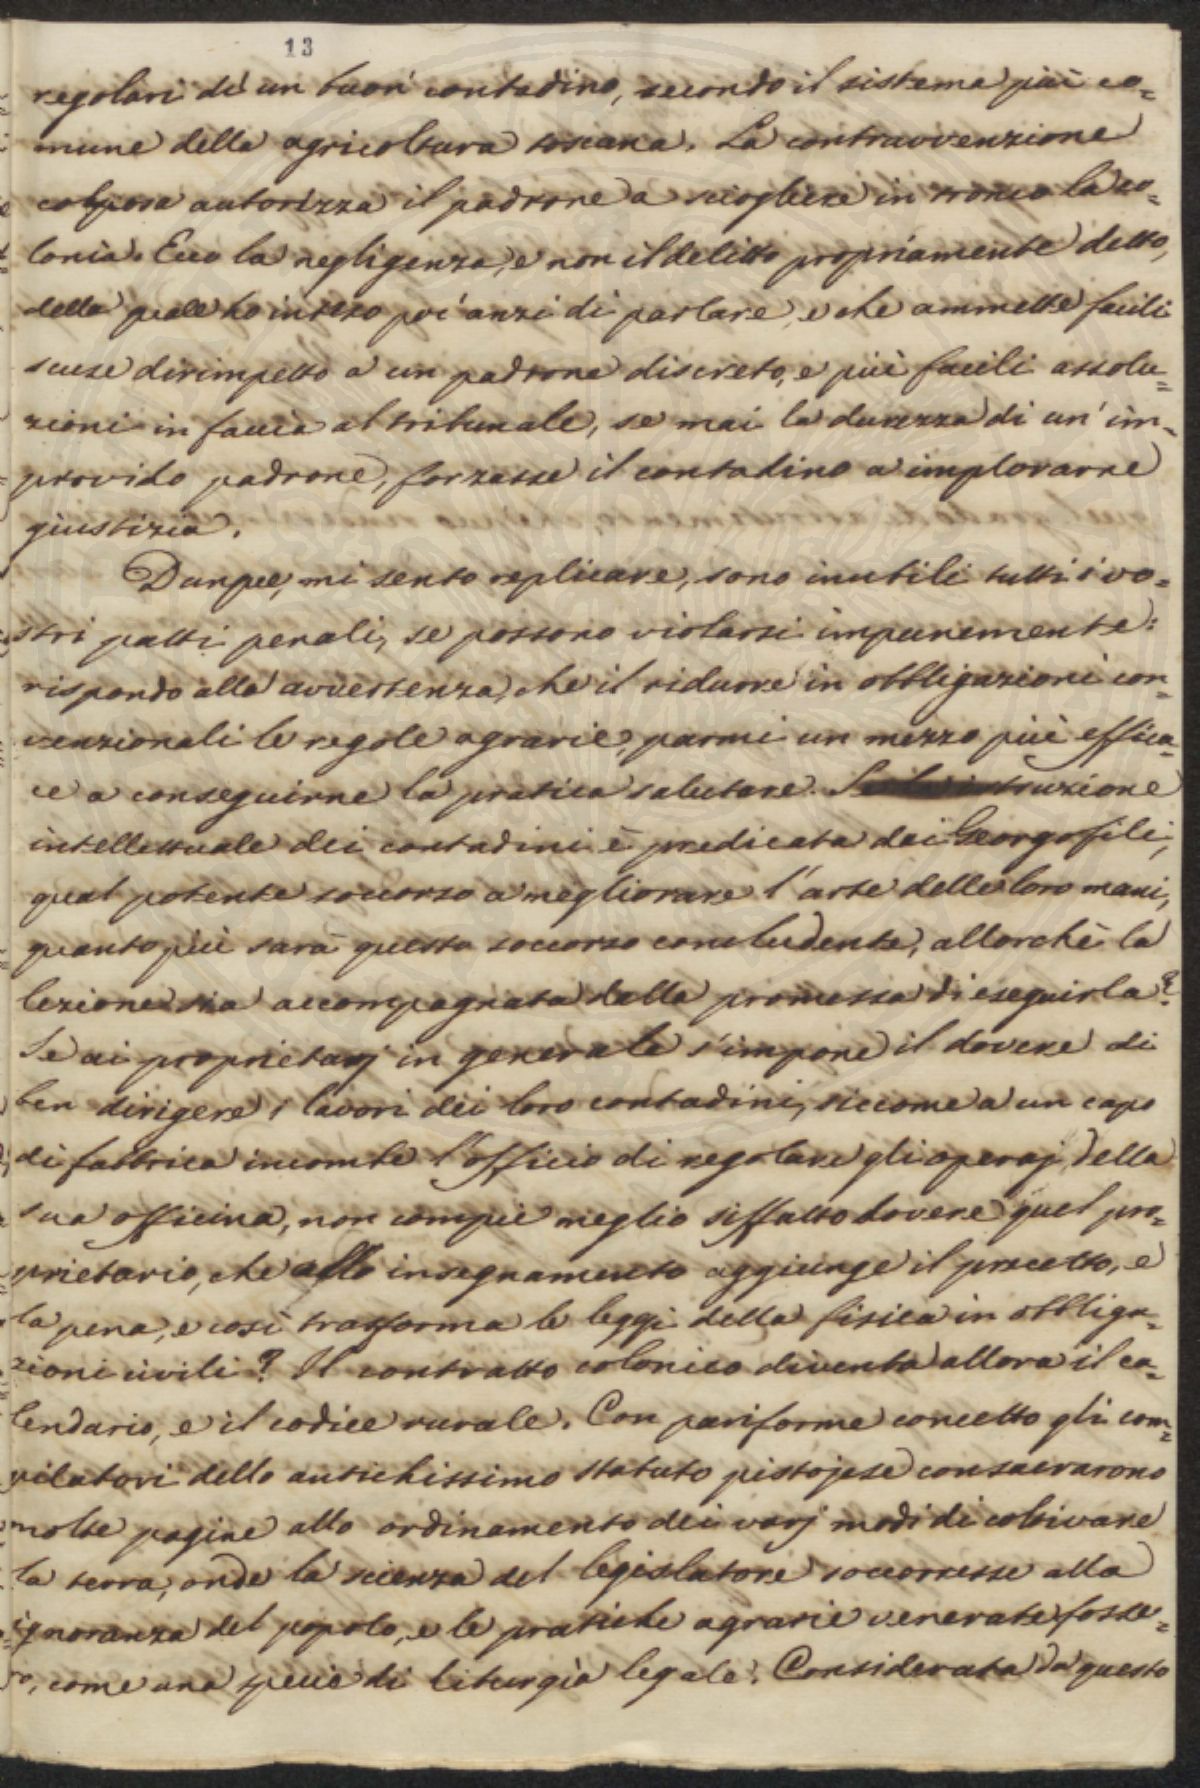 13
regolari di un buon contadino, secondo il sistema più co=
mune della agricoltura toscana. La contravvenzione
colposa autorizza il padrone a sciogliere in tronco la co=
lonia. Ecco la negligenza, e non il delitto propriamente detto,
della quale ho inteso poc'anzi di parlare, e che ammette facili
scuse dirimpetto a un padrone discreto, e più facili assolu=
zioni in faccia al tribunale, se mai la durezza di un' im=
provido padrone, forzasse il contadino a implorarne
giustizia.
Dunque, mi sento replicare, sono inutili tutti i vo=
stri patti penali, se possono violarsi impunemente:
rispondo alla avvertenza, che il ridurre in obbligazioni con=
venzionali le regole agrarie, parmi un mezzo più effica=
ce a conseguirne la pratica salutare. Se la istruzione
intellettuale dei contadini è predicata dai Georgofili,
qual potente soccorso a megliorare l'arte delle loro mani,
quanto più sarà questo soccorso concludente, allorchè la
lezione sia accompagnata dalla promessa di eseguirla?
Se ai proprietarj in generale s'impone il dovere di
ben dirigere i lavori dei loro contadini, siccome a un capo
di fabbrica incombe l'officio di regolare gli operaj della
sua officina, non compie meglio siffatto dovere quel pro=
prietario, che allo insegnamento aggiunge il precetto, e
la pena, e così trasforma le leggi della fisica in obbliga=
zioni civili? Il contratto colonico diventa allora il ca=
lendario, e il codice rurale. Con pariforme concetto gli com=
pilatori dello antichissimo statuto pistojese consacrarono
molte pagine allo ordinamento dei varj modi di coltivare
la terra, onde la scienza del legislatore soccorresse alla
ignoranza del popolo, e le pratiche agrarie venerate fosse=
ro, come una specie di liturgia legale. Considerata da questo